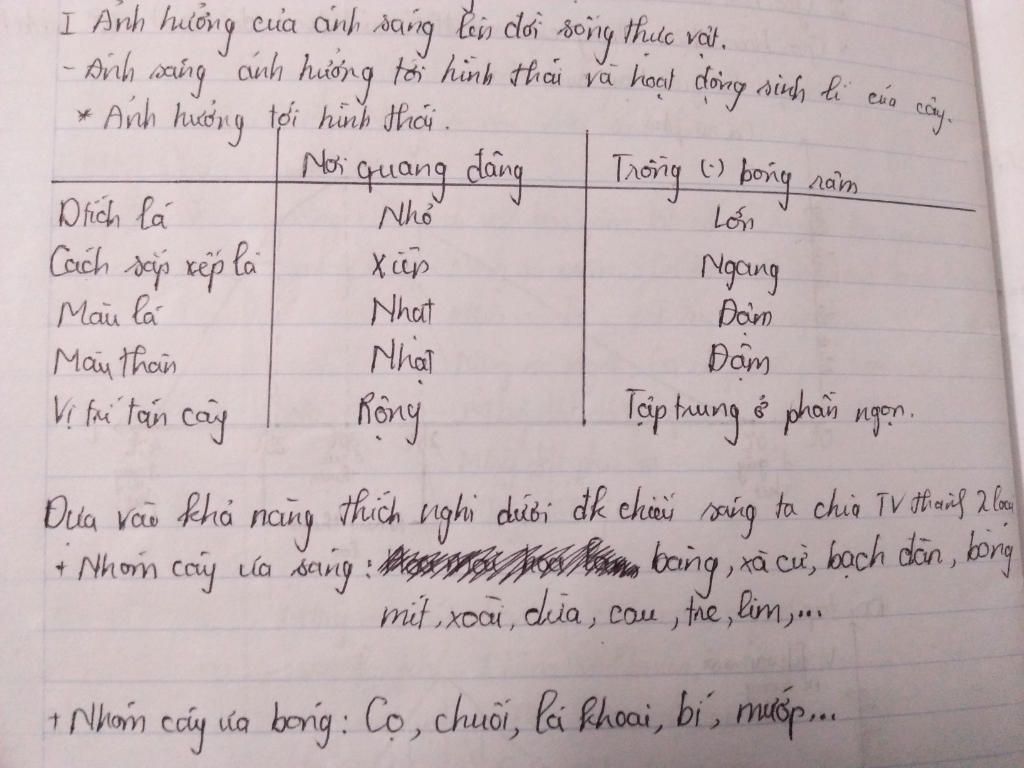 I Ảnh hưởng của ánh sáng lên đời sống thực vật.
- Ánh sáng ảnh hưởng tới hình thái và hoạt động sinh lí của cây.
* Ảnh hưởng tới hình thái.
Nơi quang đãng Trồng (·) bóng râm
Dtích lá Nhỏ Lớn
Cách sắp xếp lá Xiên Ngang
Màu lá Nhạt Đậm
Màu thân Nhạt Đậm
Vị trí tán cây Rộng Tập trung ở phần ngọn.
Dựa vào khả năng thích nghi dưới đk chiếu sáng ta chia TV thành 2 loại
+ Nhóm cây ưa sáng: bàng, xà cừ, bạch đàn, bông
mít, xoài, dừa, cau, tre, lim,...
+ Nhóm cây ưa bóng: Cọ, chuối, lá khoai, bí, mướp...